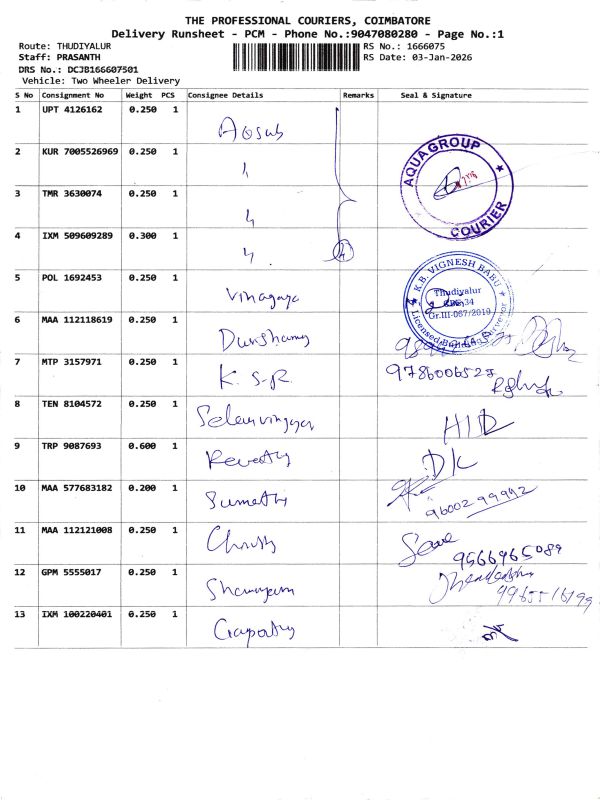 THE PROFESSIONAL COURIERS, COIMBATORE
Delivery Runsheet - PCM - Phone No.:9047080280 - Page No.:1
Route: THUDIYALUR RS No.: 1666075
Staff: PRASANTH RS Date: 03-Jan-2026
DRS No.: DCJB166607501
Vehicle: Two Wheeler Delivery
S No Consignment No Weight PCS Consignee Details Remarks Seal & Signature
1 UPT 4126162 0.250 1
2 KUR 7005526969 0.250 1 AQUAGROUP
3 TMR 3630074 0.250 1
COURIER
4 IXM 509609289 0.300 1 4
K.B. VIGNESH BABU
5 POL 1692453 0.250 1 Vinayaga Thudiyalur
Gr.III-067/2019
Licensed Building Surveyor
6 MAA 112118619 0.250 1
7 MTP 3157971 0.250 1 K. S-R 9786006527
8 TEN 8104572 0.250 1 Selvavinayagar
9 TRP 9087693 0.600 1 Revathy DK
10 MAA 577683182 0.200 1 Sumathi 96002 99992
11 MAA 112121008 0.250 1 Christy 9566965089
12 GPM 5555017 0.250 1
13 IXM 100220401 0.250 1 Ganapathy